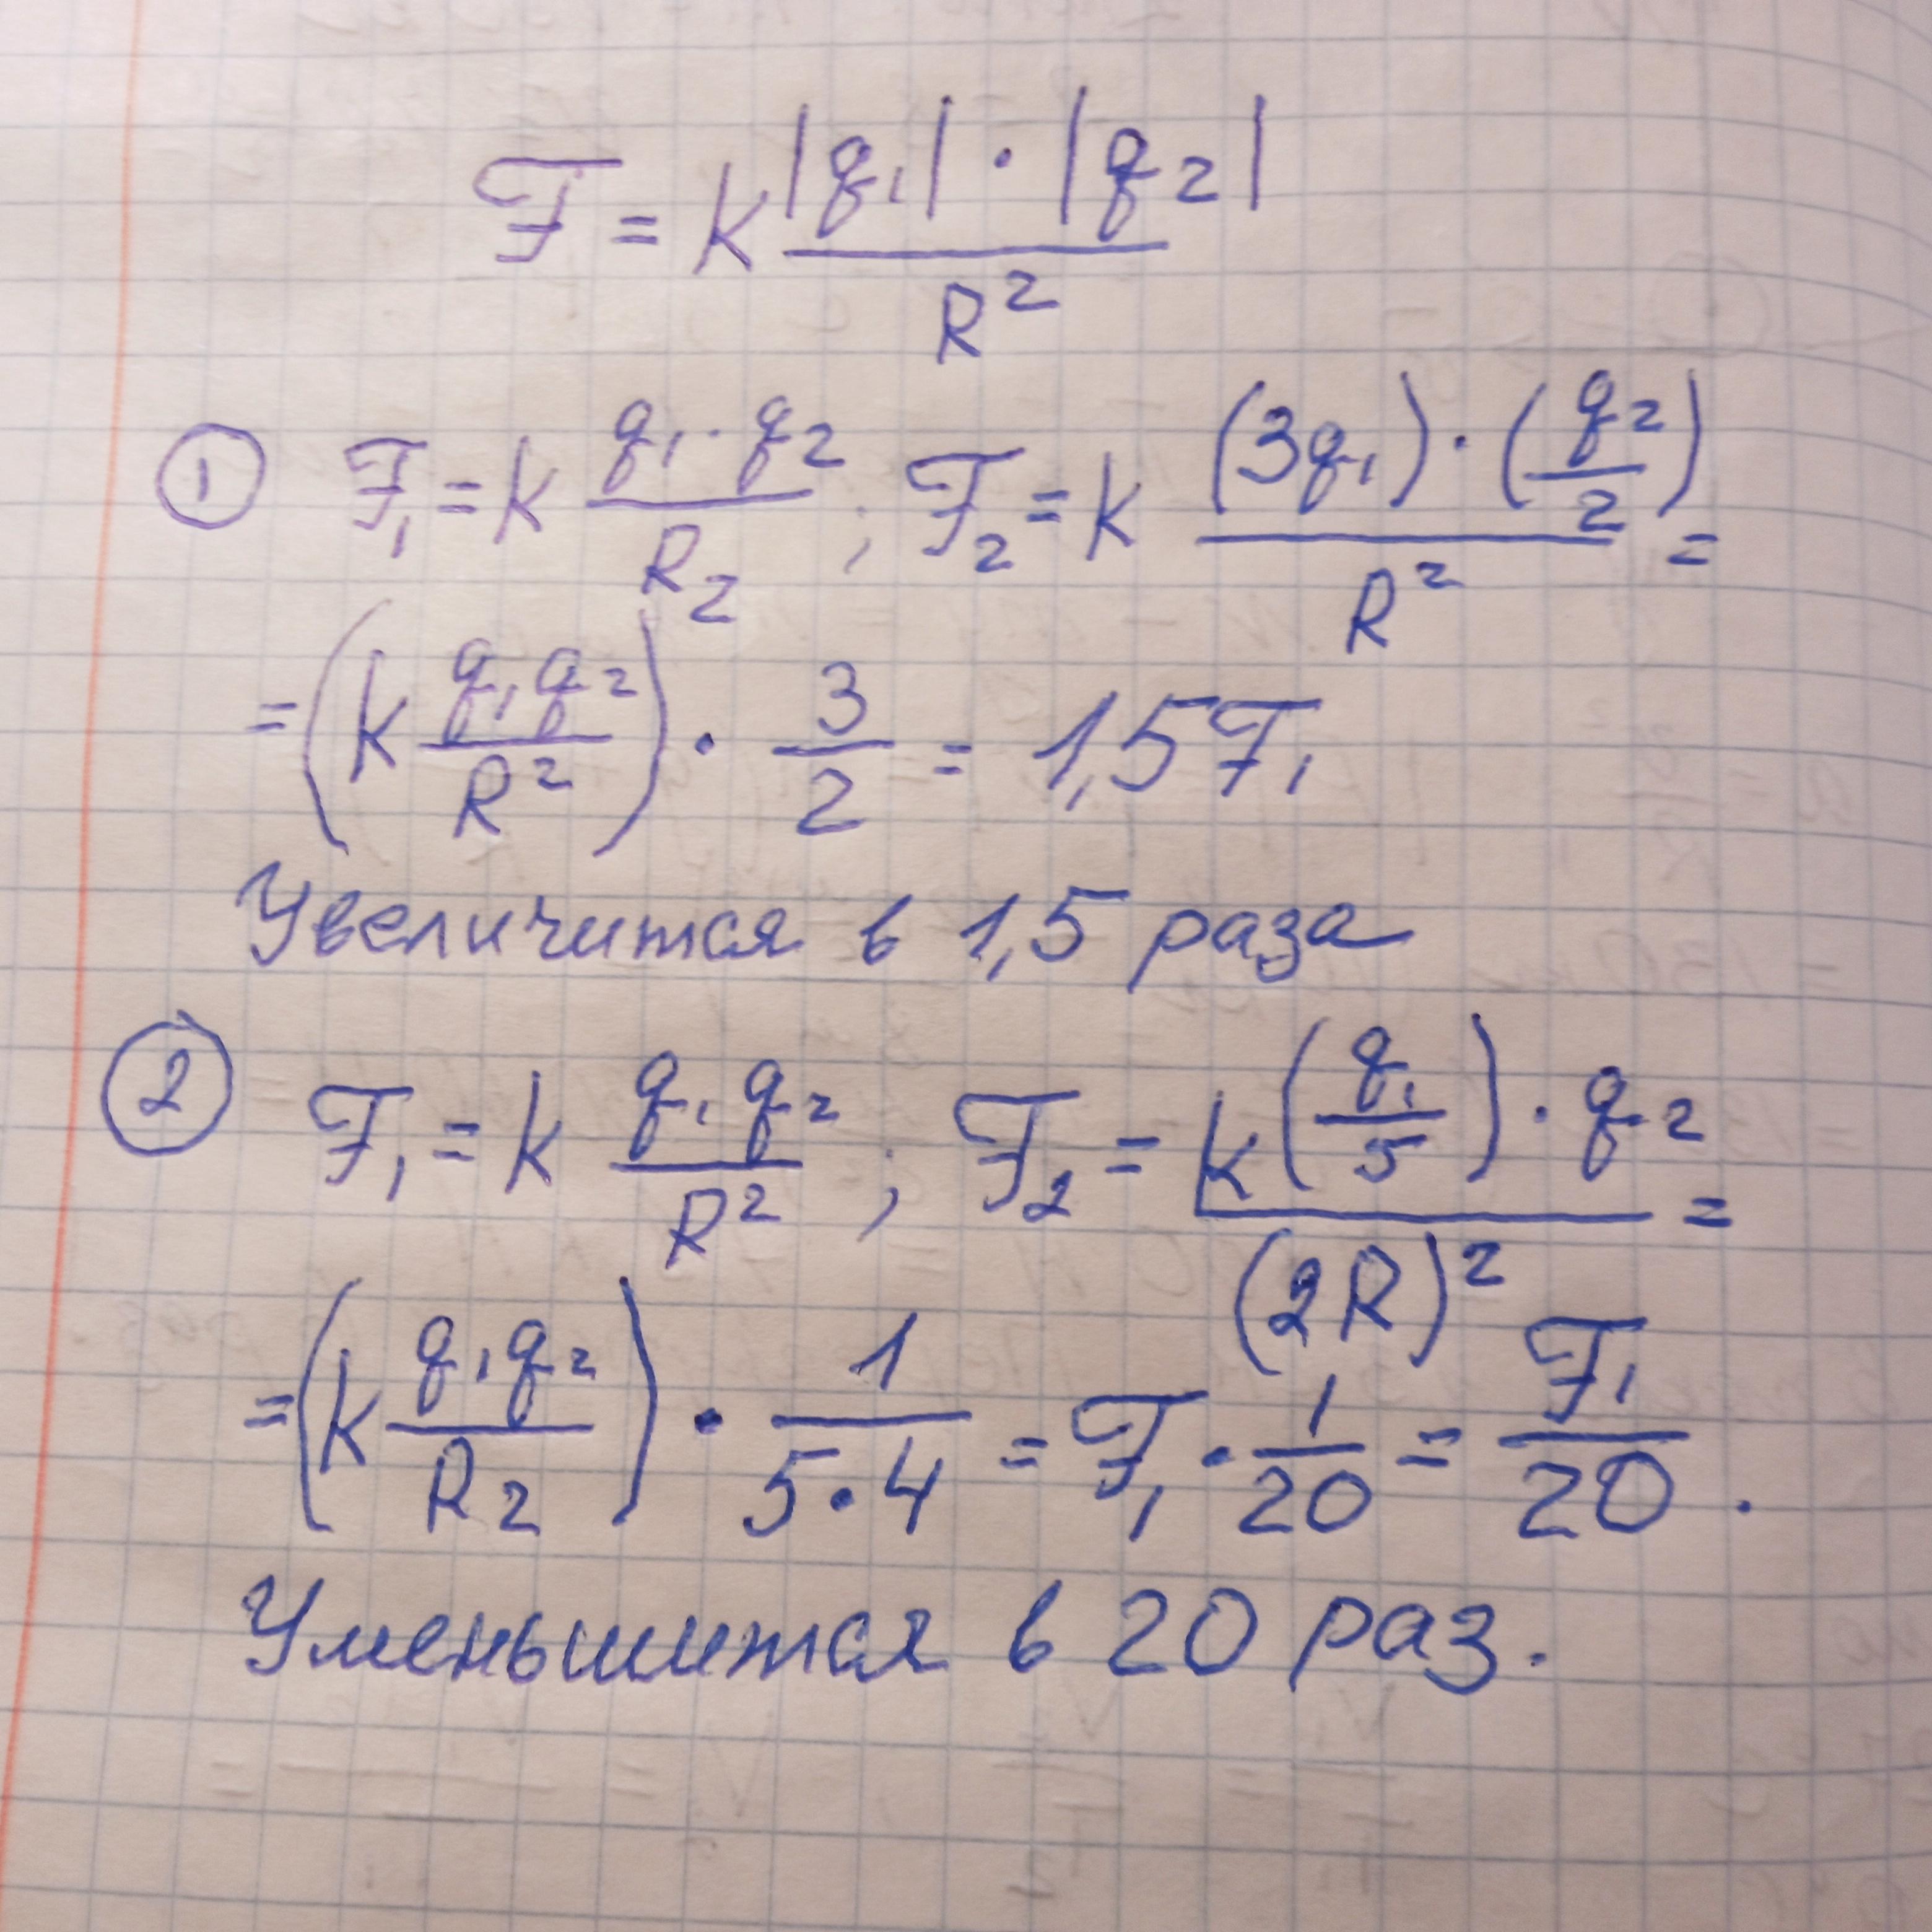 F = k |q₁| · |q₂| / R²
① F₁ = k q₁ · q₂ / R₂ ; F₂ = k (3q₁) · (q₂/2) / R² =
= (k q₁q₂ / R²) · 3/2 = 1,5F₁
Увеличится в 1,5 раза
② F₁ = k q₁q₂ / R² ; F₂ = k(q₁/5) · q₂ / (2R)² =
= (k q₁q₂ / R₂) · 1 / 5·4 = F₁ · 1/20 = F₁/20 .
Уменьшится в 20 раз.